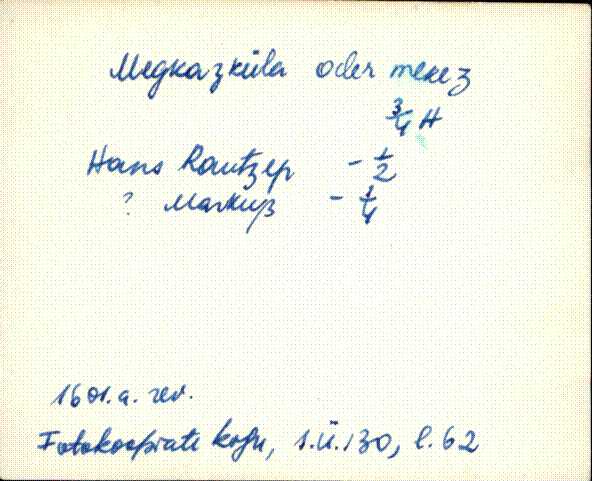 Megkazküla oder mekez
3/4 H
Hans Rautzep - 1/2
? Markus - 1/4
1601.a. rev.
Fotokoopiate kogu, s.ü.130, l.62